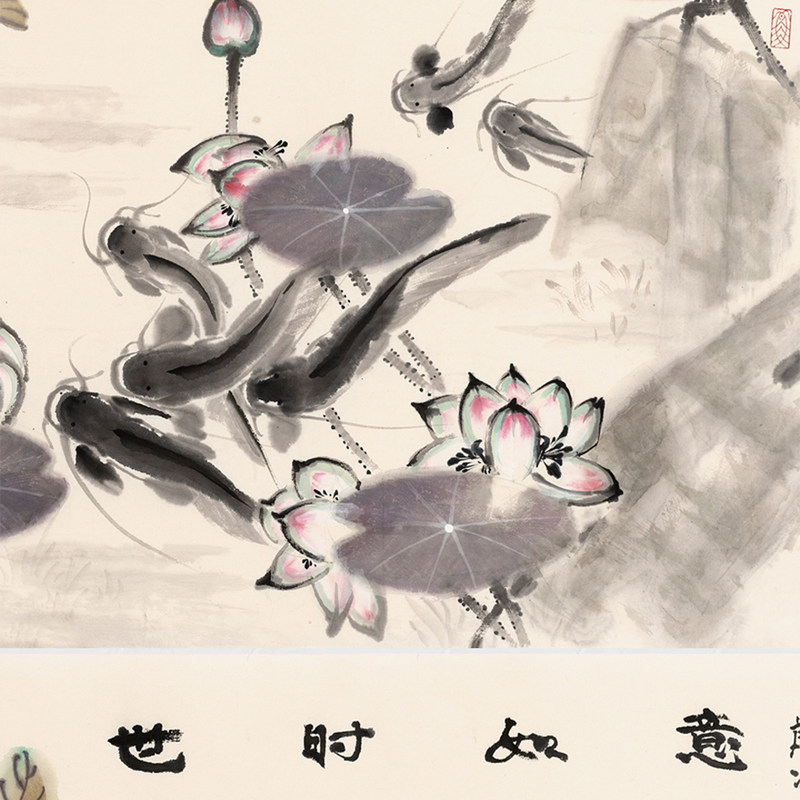 世时如意